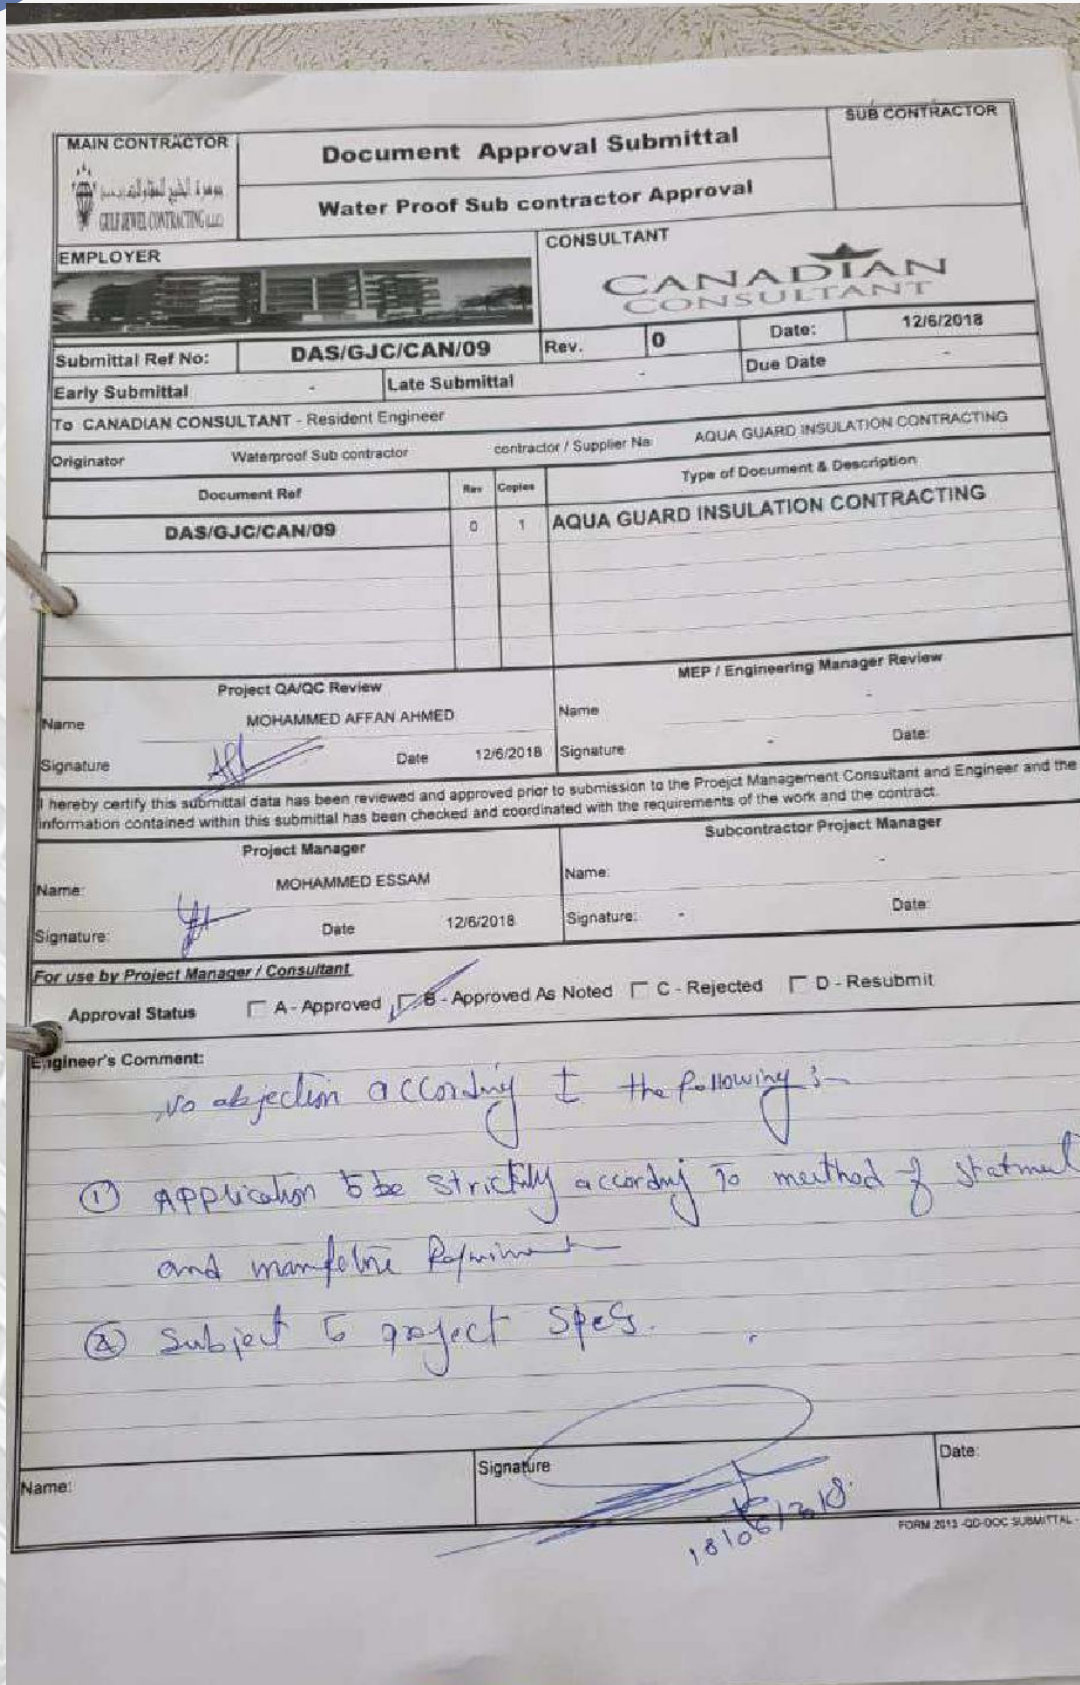 MAIN CONTRACTOR
GULF JEWEL CONTRACTING LLC
Document Approval Submittal
Water Proof Sub contractor Approval
SUB CONTRACTOR
EMPLOYER
CONSULTANT
CANADIAN
CONSULTANT
Submittal Ref No: DAS/GJC/CAN/09 Rev. 0 Date: 12/6/2018
Early Submittal - Late Submittal - Due Date -
To CANADIAN CONSULTANT - Resident Engineer
Originator Waterproof Sub contractor contractor / Supplier Na AQUA GUARD INSULATION CONTRACTING
Document Ref Rev Copies Type of Document & Description
DAS/GJC/CAN/09 0 1 AQUA GUARD INSULATION CONTRACTING
Project QA/QC Review MEP / Engineering Manager Review
Name MOHAMMED AFFAN AHMED Name -
Signature Date 12/6/2018 Signature - Date:
I hereby certify this submittal data has been reviewed and approved prior to submission to the Proejct Management Consultant and Engineer and the
information contained within this submittal has been checked and coordinated with the requirements of the work and the contract.
Project Manager Subcontractor Project Manager
Name: MOHAMMED ESSAM Name: -
Signature: Date 12/6/2018 Signature: - Date:
For use by Project Manager / Consultant
Approval Status A - Approved B - Approved As Noted C - Rejected D - Resubmit
Engineer's Comment:
No objection according to the following :-
① Application to be strictly according to method of statment
and
② Subject to project specs.
Name: Signature Date:
18/06/2018
FORM 2013 -QD-DOC SUBMITTAL -